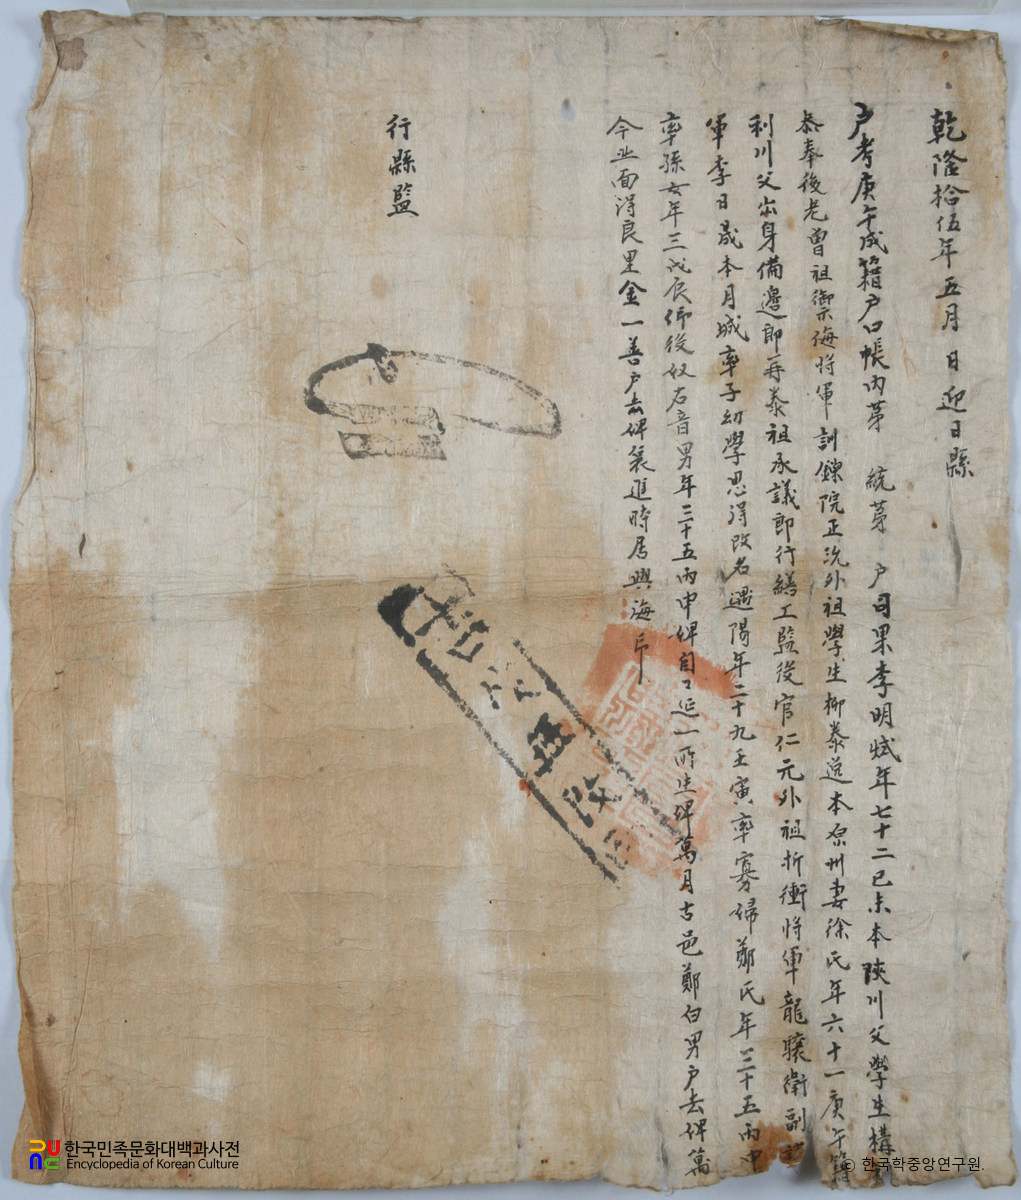 乾隆拾伍年五月 日迎日縣
戶考庚午成籍戶口帳內苐 統苐 戶司果李明烒年七十二己未本陜川父學生構
泰奉後老曾祖禦侮將軍訓鍊院正沆外祖學生柳泰 本 州妻徐氏年六十一庚午籍
利川父出身備邊郎再泰祖承議郎行繕工監役官仁元外祖折衝將軍龍驤衛副
軍李日晟本月城率子幼學思得改名遇陽年二十九壬寅率寡婦鄭氏年三十五丙申
率孫女年三戊辰仰役奴石音男年三十五丙申婢自 延一所生婢萬月古邑鄭白男戶去婢萬
今北面得良里金一善戶去婢 進時居興海印
行縣監
한국민족문화대백과사전
Encyclopedia of Korean Culture
© 한국학중앙연구원.